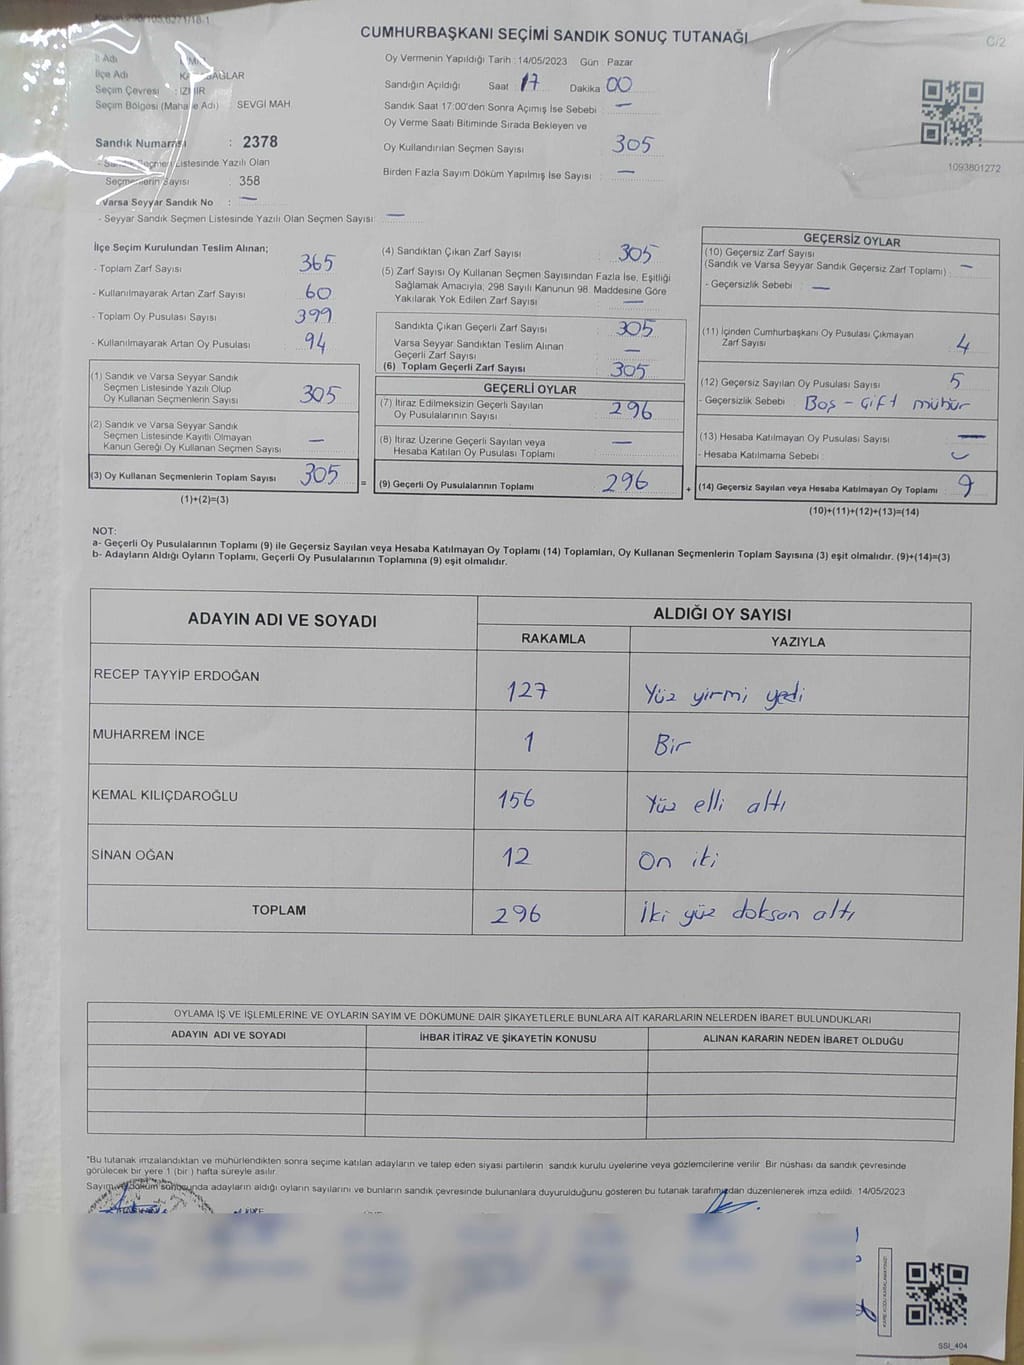 CUMHURBAŞKANI SEÇİMİ SANDIK SONUÇ TUTANAĞI
C/2
İl Adı
İlçe Adı
Seçim Çevresi : İZMİR
Seçim Bölgesi (Mahalle Adı) : SEVGİ MAH
Sandık Numarası : 2378
- Sandık Seçmen Listesinde Yazılı Olan
Seçmenlerin Sayısı : 358
Varsa Seyyar Sandık No : —
- Seyyar Sandık Seçmen Listesinde Yazılı Olan Seçmen Sayısı: —
Oy Vermenin Yapıldığı Tarih : 14/05/2023 Gün : Pazar
Sandığın Açıldığı Saat 17 Dakika 00
Sandık Saat 17:00'den Sonra Açımış İse Sebebi : —
Oy Verme Saati Bitiminde Sırada Bekleyen ve
Oy Kullandırılan Seçmen Sayısı : 305
Birden Fazla Sayım Döküm Yapılmış İse Sayısı : —
1093801272
İlçe Seçim Kurulundan Teslim Alınan;
- Toplam Zarf Sayısı : 365
- Kullanılmayarak Artan Zarf Sayısı : 60
- Toplam Oy Pusulası Sayısı : 399
- Kullanılmayarak Artan Oy Pusulası : 94
(1) Sandık ve Varsa Seyyar Sandık
Seçmen Listesinde Yazılı Olup
Oy Kullanan Seçmenlerin Sayısı : 305
(2) Sandık ve Varsa Seyyar Sandık
Seçmen Listesinde Kayıtlı Olmayan
Kanun Gereği Oy Kullanan Seçmen Sayısı : —
(3) Oy Kullanan Seçmenlerin Toplam Sayısı 305
(1)+(2)=(3)
=
(4) Sandıktan Çıkan Zarf Sayısı : 305
(5) Zarf Sayısı Oy Kullanan Seçmen Sayısından Fazla İse, Eşitliği
Sağlamak Amacıyla, 298 Sayılı Kanunun 98. Maddesine Göre
Yakılarak Yok Edilen Zarf Sayısı : —
Sandıkta Çıkan Geçerli Zarf Sayısı : 305
Varsa Seyyar Sandıktan Teslim Alınan
Geçerli Zarf Sayısı : —
(6) Toplam Geçerli Zarf Sayısı : 305
GEÇERLİ OYLAR
(7) İtiraz Edilmeksizin Geçerli Sayılan
Oy Pusulalarının Sayısı : 296
(8) İtiraz Üzerine Geçerli Sayılan veya
Hesaba Katılan Oy Pusulası Toplamı : —
(9) Geçerli Oy Pusulalarının Toplamı 296
+
GEÇERSİZ OYLAR
(10) Geçersiz Zarf Sayısı
(Sandık ve Varsa Seyyar Sandık Geçersiz Zarf Toplamı) : —
- Geçersizlik Sebebi : —
(11) İçinden Cumhurbaşkanı Oy Pusulası Çıkmayan
Zarf Sayısı : 4
(12) Geçersiz Sayılan Oy Pusulası Sayısı : 5
- Geçersizlik Sebebi : Boş - Çift mühür
(13) Hesaba Katılmayan Oy Pusulası Sayısı : —
- Hesaba Katılmama Sebebi :
(14) Geçersiz Sayılan veya Hesaba Katılmayan Oy Toplamı : 9
(10)+(11)+(12)+(13)=(14)
NOT:
a- Geçerli Oy Pusulalarının Toplamı (9) ile Geçersiz Sayılan veya Hesaba Katılmayan Oy Toplamı (14) Toplamları, Oy Kullanan Seçmenlerin Toplam Sayısına (3) eşit olmalıdır. (9)+(14)=(3)
b- Adayların Aldığı Oyların Toplamı, Geçerli Oy Pusulalarının Toplamına (9) eşit olmalıdır.
ADAYIN ADI VE SOYADI
ALDIĞI OY SAYISI
RAKAMLA YAZIYLA
RECEP TAYYİP ERDOĞAN 127 Yüz yirmi yedi
MUHARREM İNCE 1 Bir
KEMAL KILIÇDAROĞLU 156 Yüz elli altı
SİNAN OĞAN 12 On iki
TOPLAM 296 İki yüz doksan altı
OYLAMA İŞ VE İŞLEMLERİNE VE OYLARIN SAYIM VE DÖKÜMÜNE DAİR ŞİKAYETLERLE BUNLARA AİT KARARLARIN NELERDEN İBARET BULUNDUKLARI
ADAYIN ADI VE SOYADI İHBAR İTİRAZ VE ŞİKAYETİN KONUSU ALINAN KARARIN NEDEN İBARET OLDUĞU
*Bu tutanak imzalandıktan ve mühürlendikten sonra seçime katılan adayların ve talep eden siyasi partilerin sandık kurulu üyelerine veya gözlemcilerine verilir. Bir nüshası da sandık çevresinde
görülecek bir yere 1 (bir ) hafta süreyle asılır.
Sayım ve döküm sonucunda adayların aldığı oyların sayılarını ve bunların sandık çevresinde bulunanlara duyurulduğunu gösteren bu tutanak tarafımızdan düzenlenerek imza edildi. 14/05/2023
SSI_404